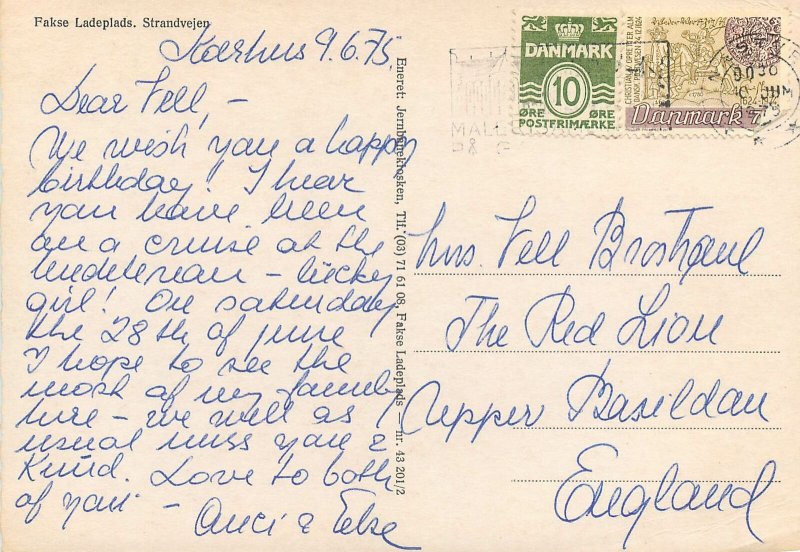 Fakse Ladeplads. Strandvejen
Karhus 9.6.75
Dear Vell, -
We wish you a happy
birthday! I hear
you have been
on a cruise at the
- lucky
girl! On saturday
the 28th of june
I hope to see the
most of my family
here - we will as
usual miss you &
Knud. Love to both
of you -
Anci & Else
Eneret: Jernbanekiosken, Tlf. (03) 71 61 08, Fakse Ladeplads — nr. 43 201/2
DANMARK
10
ØRE ØRE
POSTFRIMÆRKE
Danmark
Mrs. Vell
The Red Lion
Upper Basildan
England